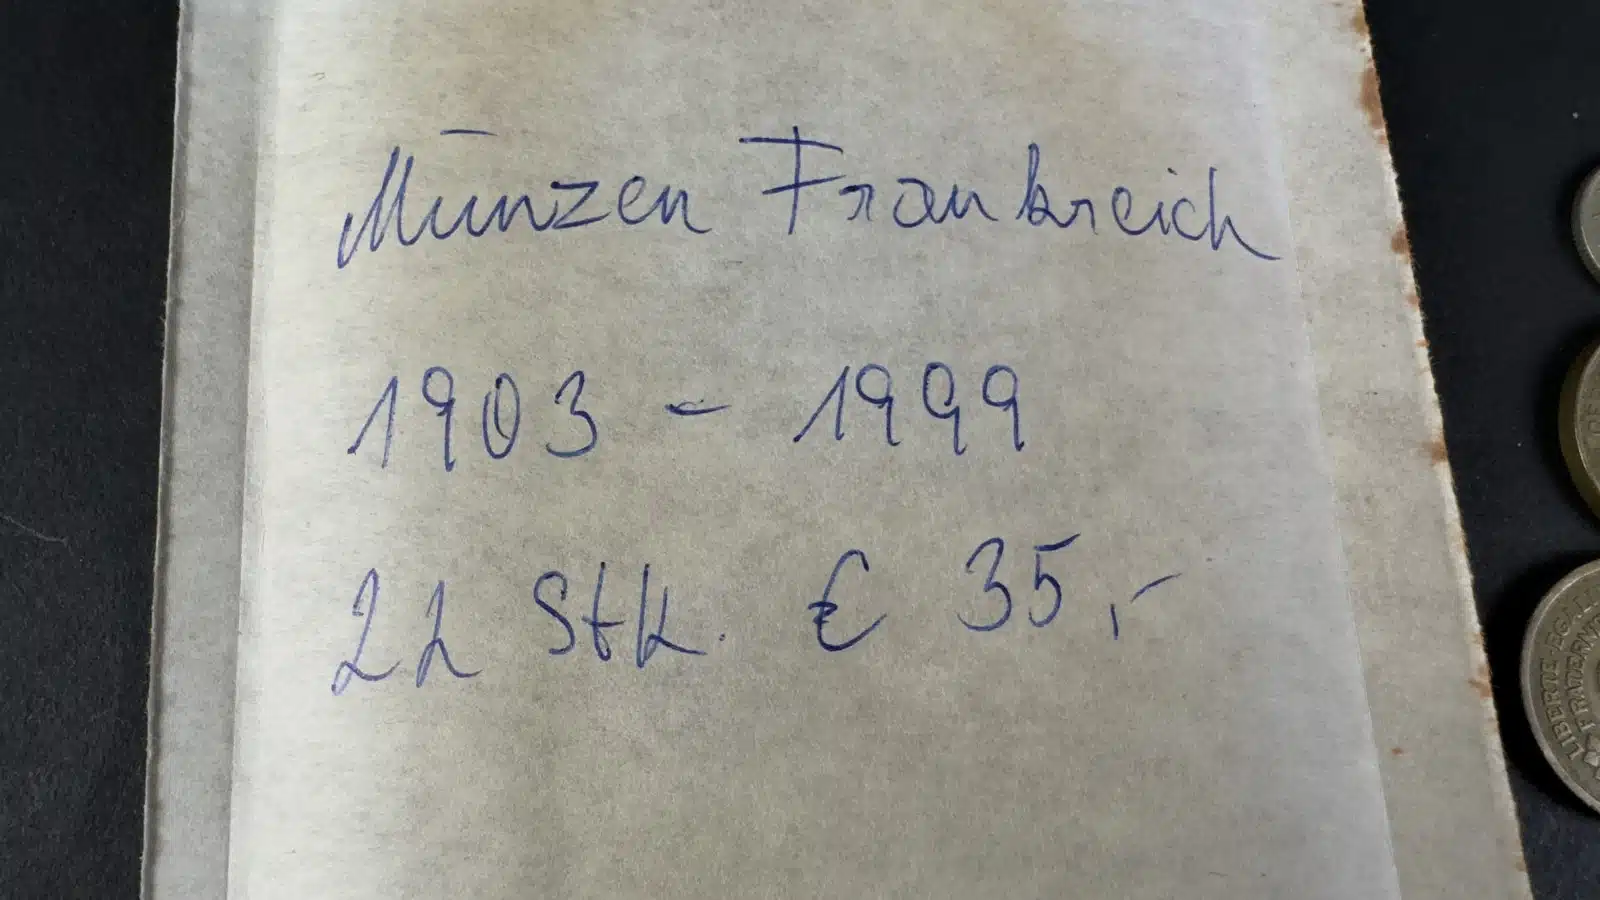 Münzen Frankreich
1903 - 1999
22 Stk. € 35,-
LIBERTE·EGALITE
FRATERN